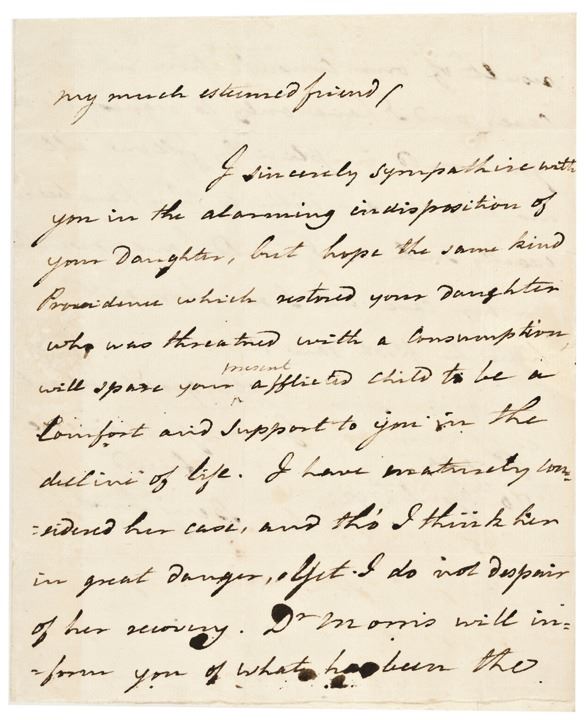 my much esteemed friend/
I sincerely sympathise with
you in the alarming indisposition of
your Daughter, but hope the same kind
Providence which restored your daughter
who was threatned with a Consumption,
present
will spare your ^ afflicted child to be a
Comfort and support to you in the
decline of life. I have maturely con-
=sidered her case, and tho' I think her
in great danger, yet I do not despair
of her recovery. Dr Morris will in=
=form you of what has been the